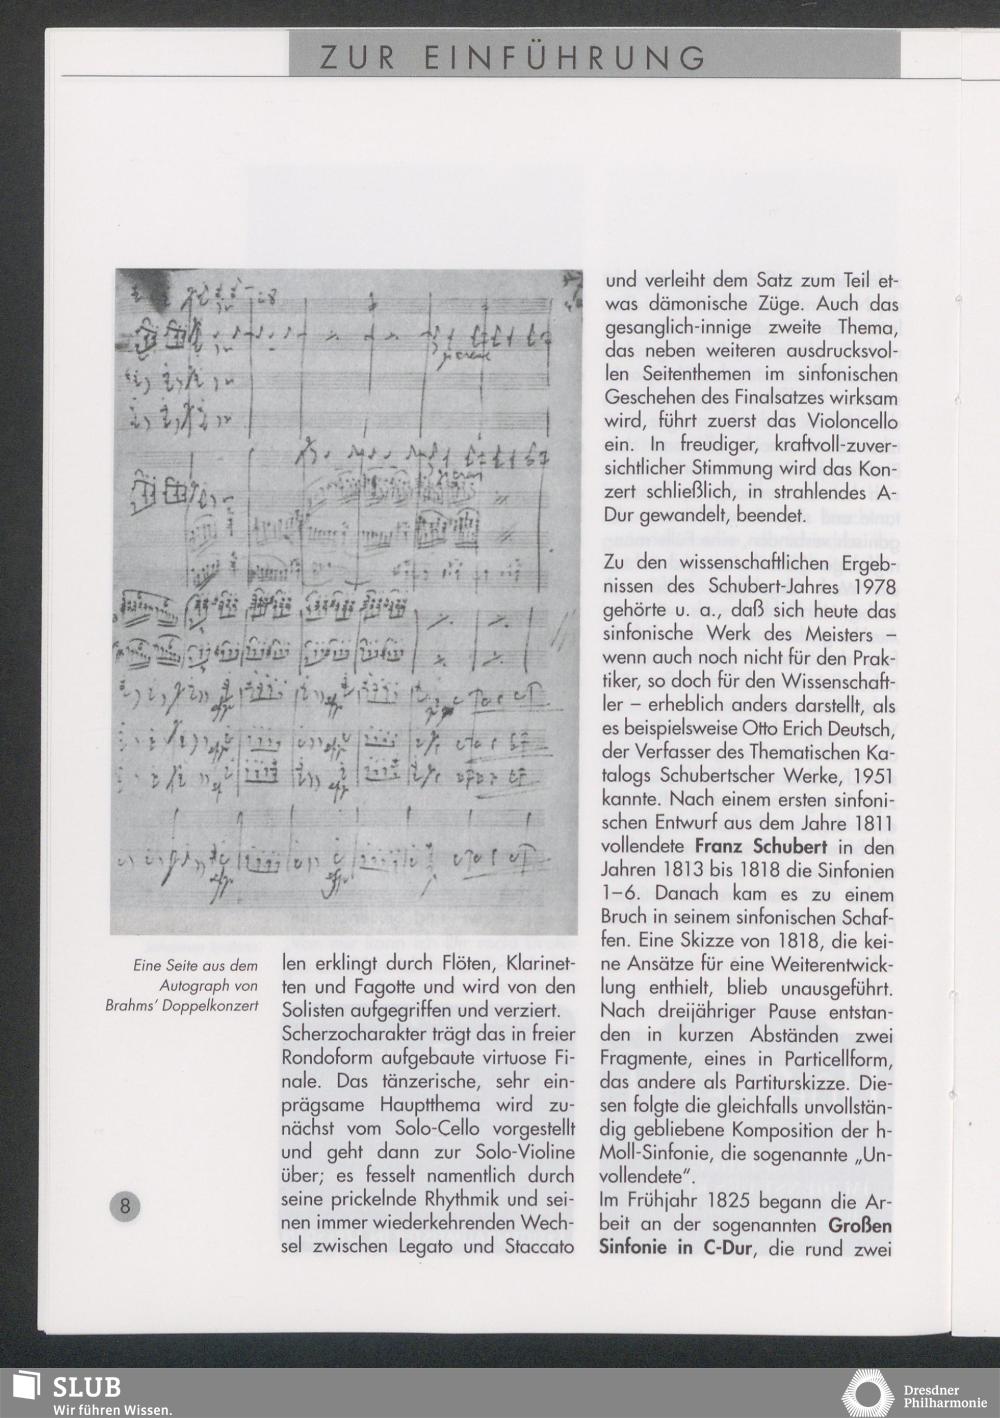 ZUR EINFÜHRUNG
Eine Seite aus dem
Autograph von
Brahms' Doppelkonzert
len erklingt durch Flöten, Klarinet-
ten und Fagotte und wird von den
Solisten aufgegriffen und verziert.
Scherzocharakter trägt das in freier
Rondoform aufgebaute virtuose Fi-
nale. Das tänzerische, sehr ein-
prägsame Hauptthema wird zu-
nächst vom Solo-Cello vorgestellt
und geht dann zur Solo-Violine
über; es fesselt namentlich durch
seine prickelnde Rhythmik und sei-
nen immer wiederkehrenden Wech-
sel zwischen Legato und Staccato
und verleiht dem Satz zum Teil et-
was dämonische Züge. Auch das
gesanglich-innige zweite Thema,
das neben weiteren ausdrucksvol-
len Seitenthemen im sinfonischen
Geschehen des Finalsatzes wirksam
wird, führt zuerst das Violoncello
ein. In freudiger, kraftvoll-zuver-
sichtlicher Stimmung wird das Kon-
zert schließlich, in strahlendes A-
Dur gewandelt, beendet.
Zu den wissenschaftlichen Ergeb-
nissen des Schubert-Jahres 1978
gehörte u. a., daß sich heute das
sinfonische Werk des Meisters –
wenn auch noch nicht für den Prak-
tiker, so doch für den Wissenschaft-
ler – erheblich anders darstellt, als
es beispielsweise Otto Erich Deutsch,
der Verfasser des Thematischen Ka-
talogs Schubertscher Werke, 1951
kannte. Nach einem ersten sinfoni-
schen Entwurf aus dem Jahre 1811
vollendete Franz Schubert in den
Jahren 1813 bis 1818 die Sinfonien
1–6. Danach kam es zu einem
Bruch in seinem sinfonischen Schaf-
fen. Eine Skizze von 1818, die kei-
ne Ansätze für eine Weiterentwick-
lung enthielt, blieb unausgeführt.
Nach dreijähriger Pause entstan-
den in kurzen Abständen zwei
Fragmente, eines in Particellform,
das andere als Partiturskizze. Die-
sen folgte die gleichfalls unvollstän-
dig gebliebene Komposition der h-
Moll-Sinfonie, die sogenannte „Un-
vollendete“.
Im Frühjahr 1825 begann die Ar-
beit an der sogenannten Großen
Sinfonie in C-Dur, die rund zwei
8
SLUB
Wir führen Wissen.
Dresdner
Philharmonie